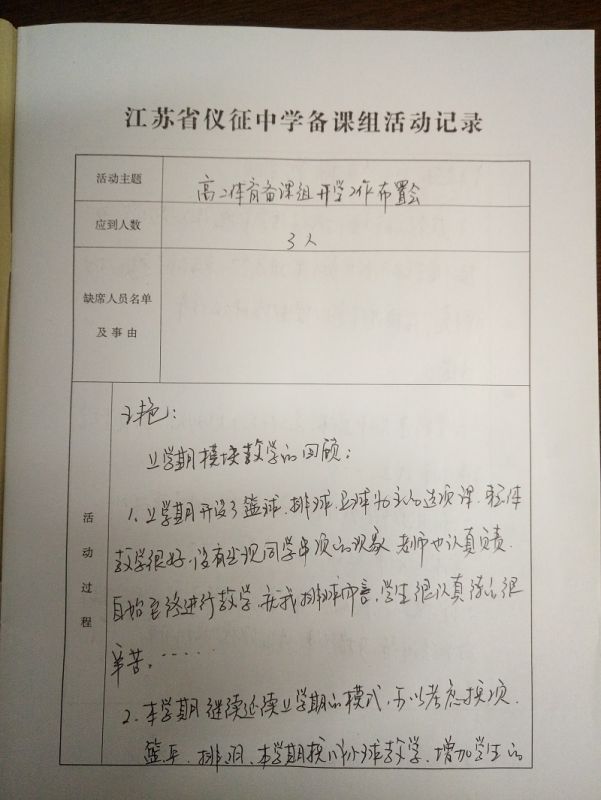 江苏省仪征中学备课组活动记录
活动主题
高二体育备课组开学工作布置会
应到人数
3人
缺席人员名单
及事由
活动过程
王艳:
上学期模块教学的回顾:
1.上学期开设了篮球、排球、足球为主的选项课,整体
教学很好,没有出现同学串项的现象,老师也认真负责,
自始至终进行教学,学生很认真练的很
辛苦。……
2.本学期继续延续上学期的模式,可以考虑换项,
篮、排,本学期教学,增加学生的